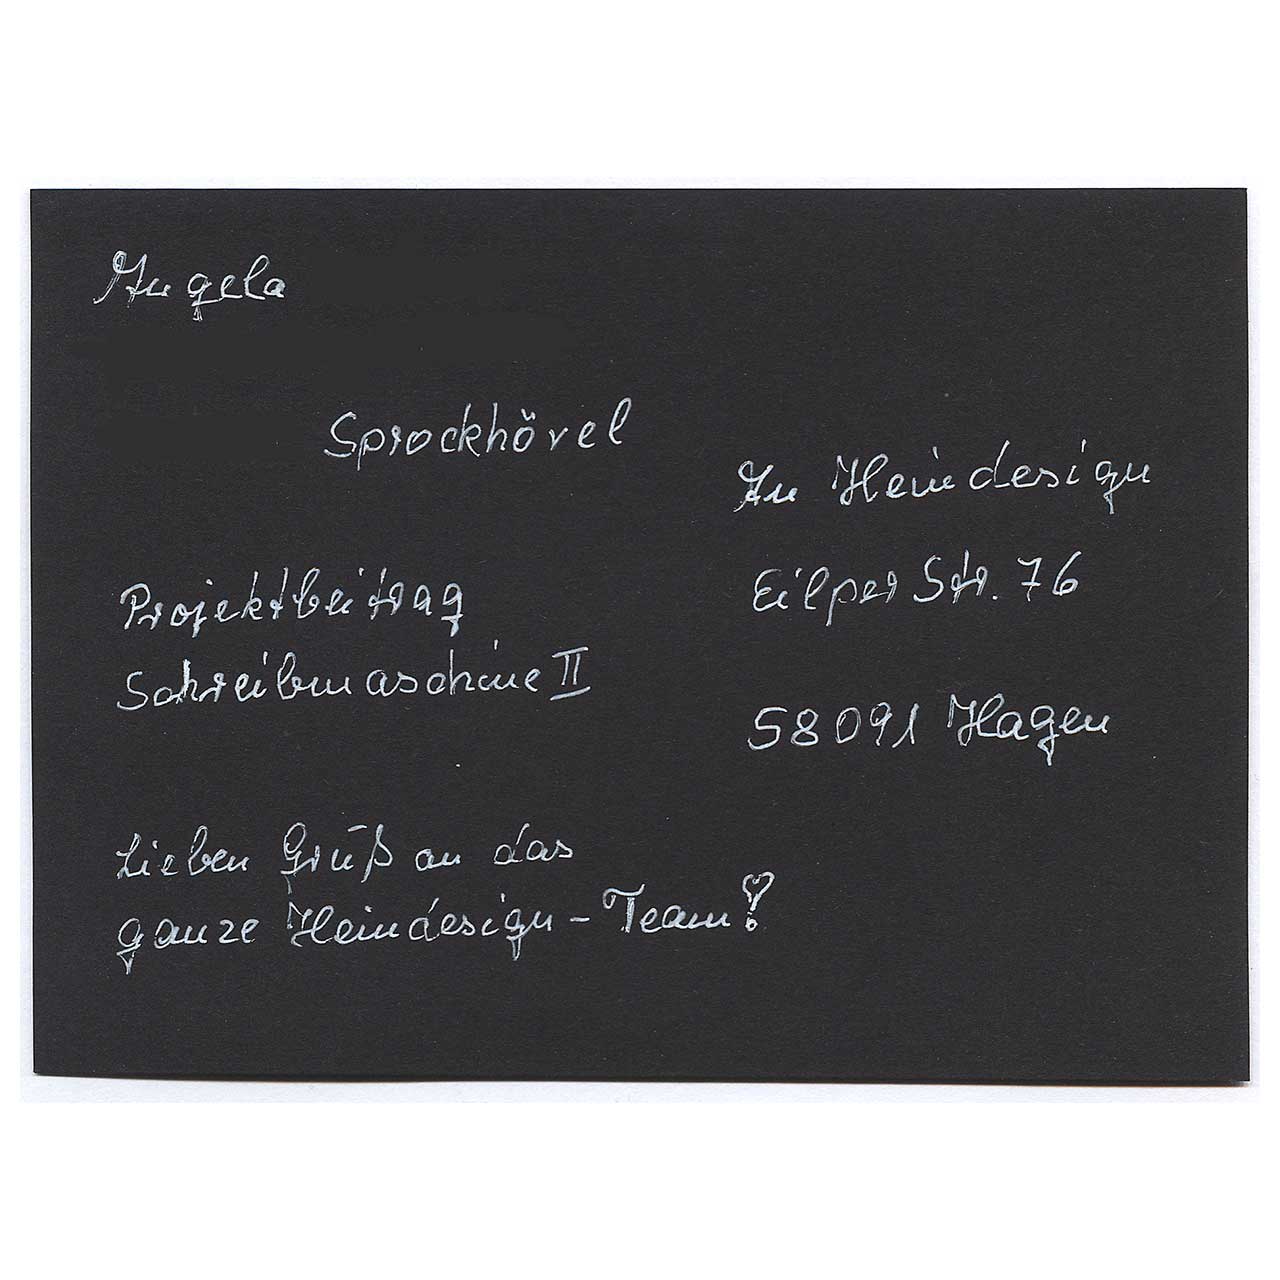 Angela
Sprockhövel
An Heindesign
Eilper Str. 76
58091 Hagen
Projektbeitrag
Schreibmaschine II
Lieben Gruß an das
ganze Heindesign-Team!